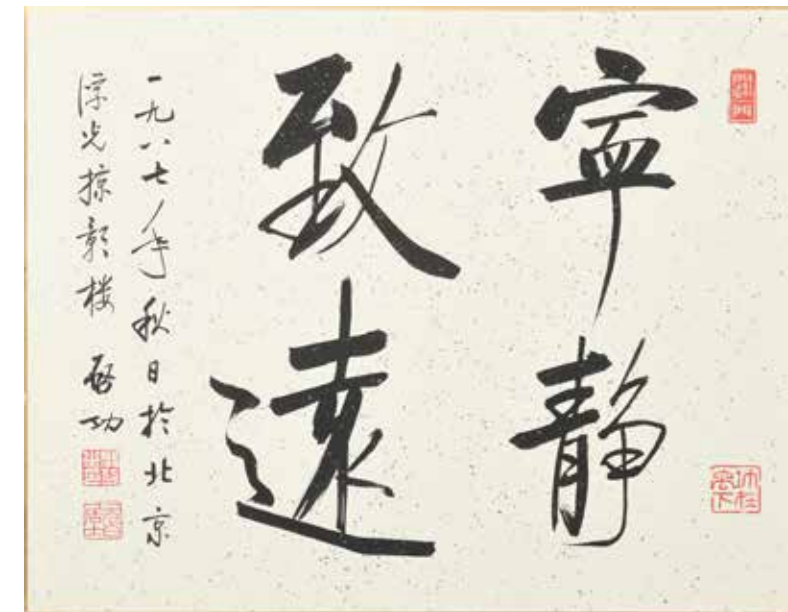 寧静
致遠
一九八七年秋日於北京
浮光掠影楼 啟功